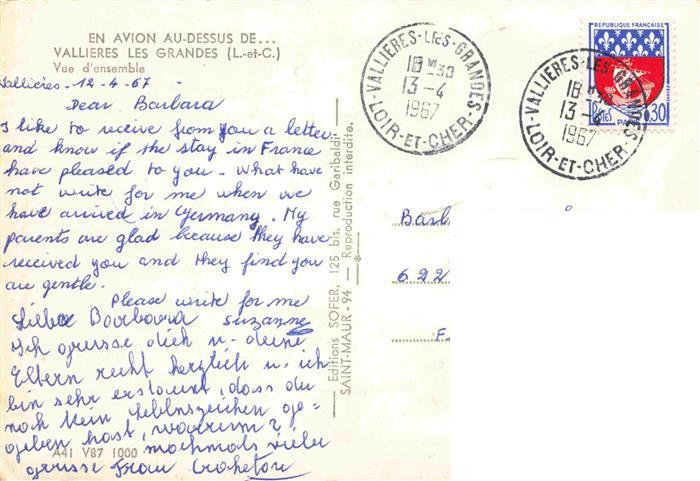 EN AVION AU-DESSUS DE...
VALLIERES LES GRANDES (L.-et-C.)
Vue d'ensemble
Vallières - 12-4-67
Dear Barbara
I like to receive from you a letter
and know if the stay in France
have pleased to you - What have
not write for me when we
have arrived in Germany. My
parents are glad because they have
received you and they find you
are gentle.
Please write for me
suzanne
Liebe Barbara
Ich grüsse dich u- deine
Eltern recht herzlich u. ich
bin sehr erstaunt, dass du
noch kein Lebenszeichen ge=
geben hast, warum?
nochmals viele
grüsse Frau
A41 V87 1000
Editions SOFER, 125 bis, rue Garibaldi -
SAINT-MAUR - 94 — Reproduction interdite.
VALLIERES-LES-GRANDES
18 H 30
13-4
1967
LOIR-ET-CHER
VALLIERES-LES-GRANDES
18
13-4
1967
LOIR-ET-CHER
REPUBLIQUE FRANÇAISE
POSTES PARIS 0,30
Barb
622
F